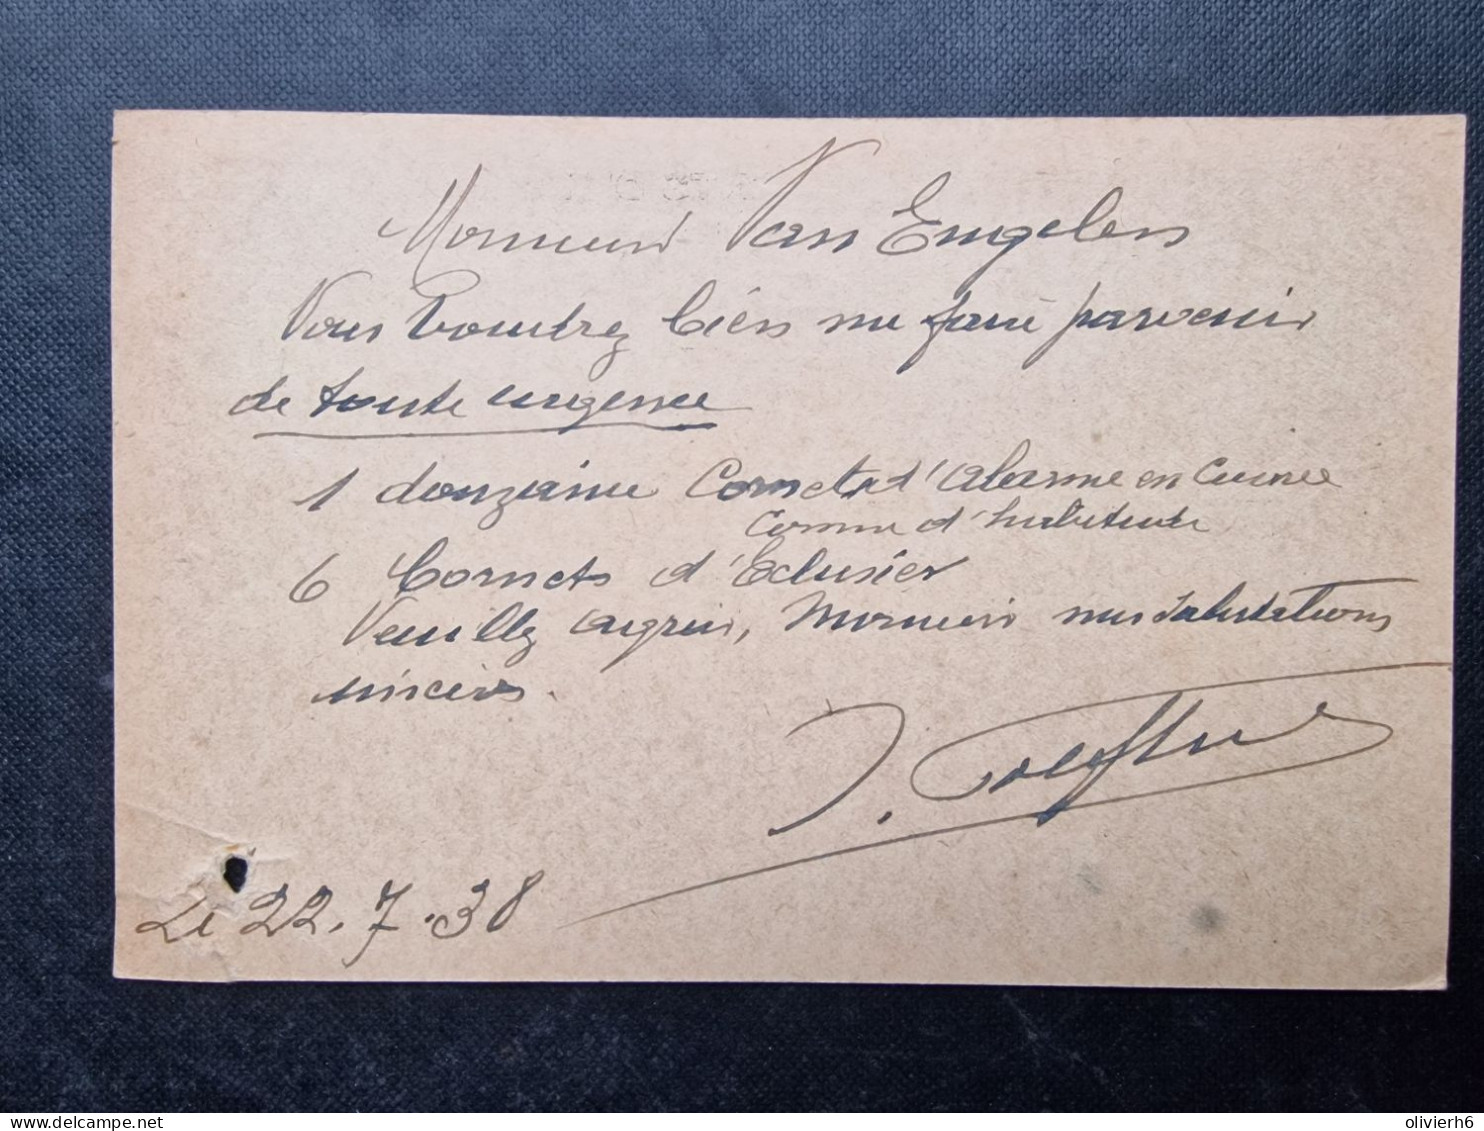 Monsieur Van Engelen
Vous Voudrez bien me faire parvenir
de toute urgence
1 douzaine Cornets d'Alarme en Cuivre
comme d'habitude
6 Cornets d'Eclusier
Veuillez agréer, Monsieur nos salutations
sincères.
J.
Le 22.7.38
olivierh6